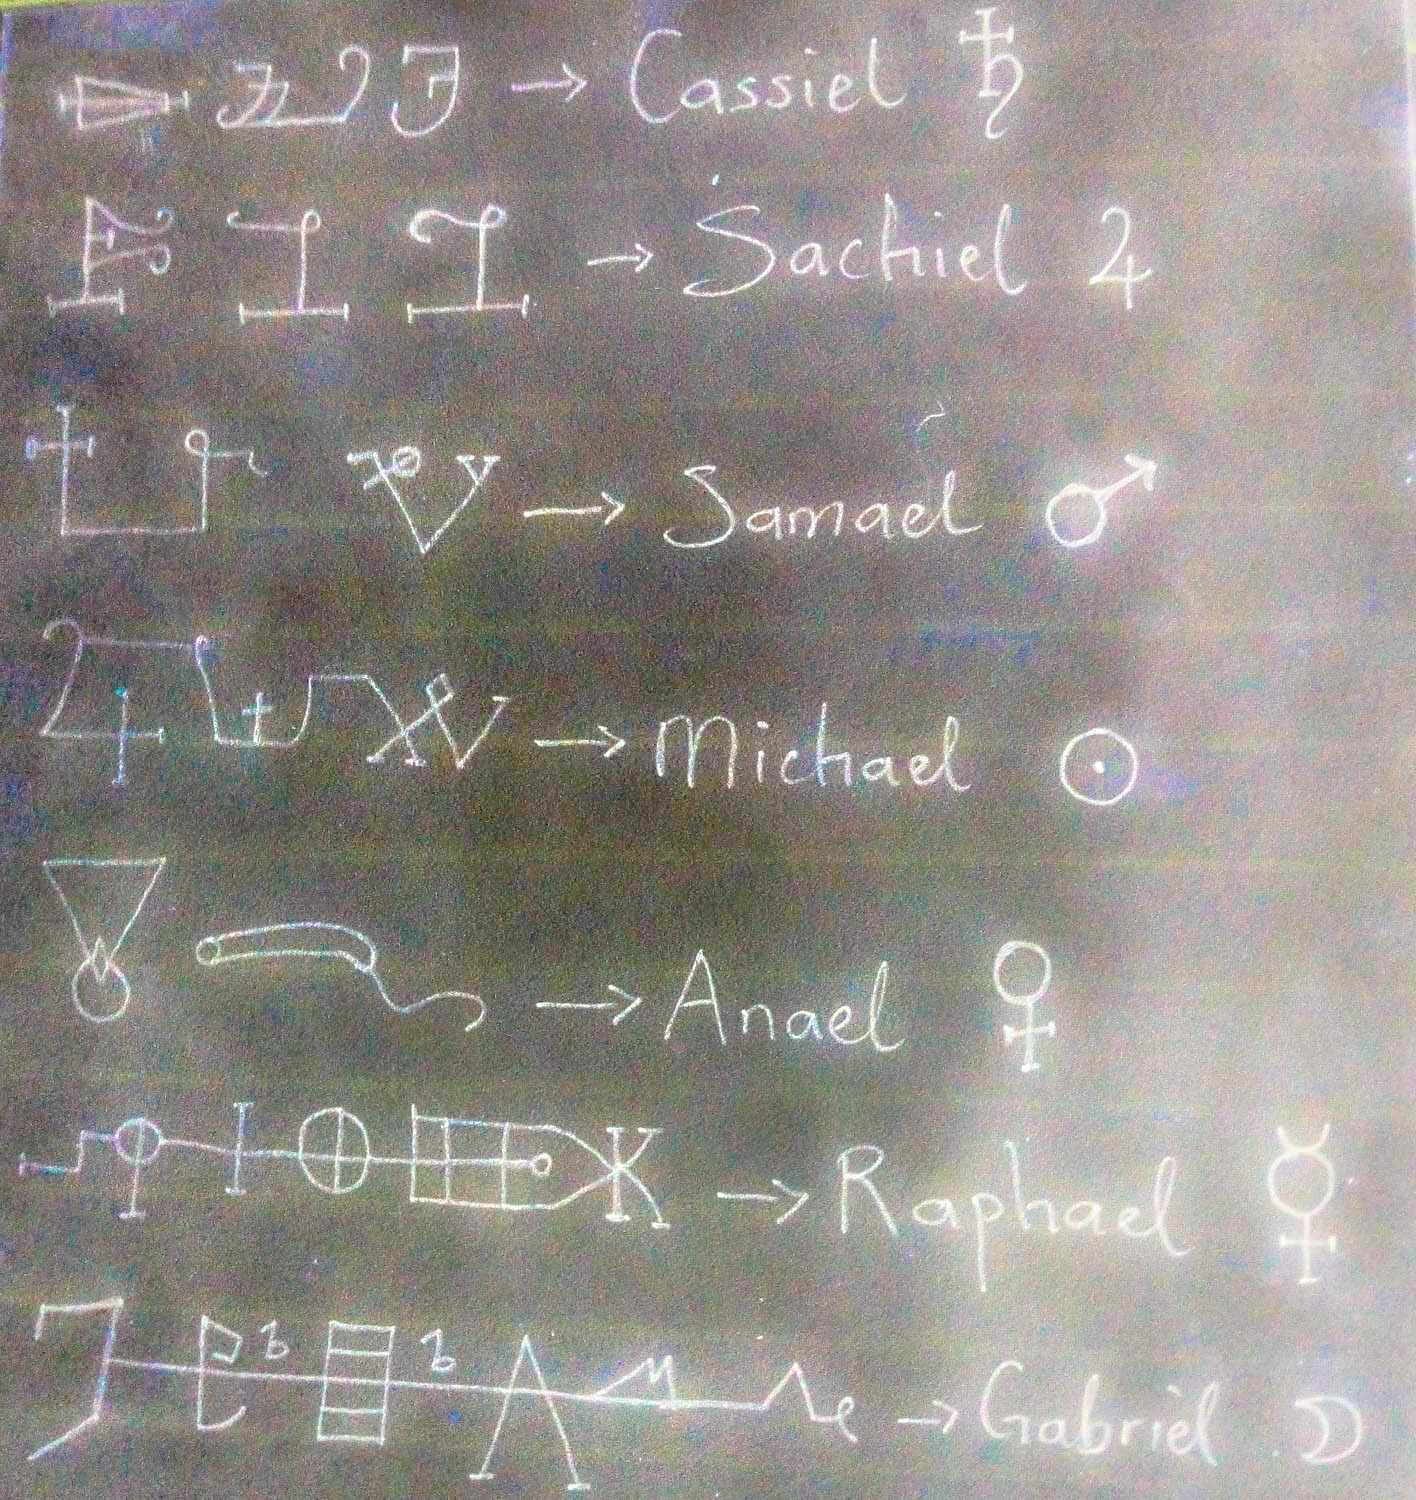 → Cassiel ♄
→ Sachiel ♃
→ Samael ♂
→ Michael ☉
→ Anael ♀
→ Raphael ☿
→ Gabriel ☽